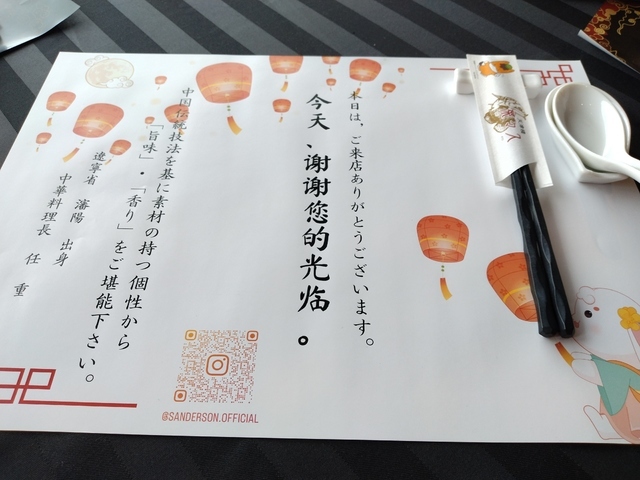 本日は、ご来店ありがとうございます。
今天、谢谢您的光临。
中国伝統技法を基に素材の持つ個性から
「旨味」・「香り」をご堪能下さい。
遼寧省 瀋陽 出身
中華料理長 任 重
@SANDERSON.OFFICIAL